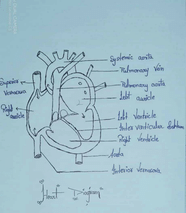 Systemic aorta
Pulmonary Vein
Pulmonary aorta
Left auricle
Superior
Venacava
Right
auricle
Left Ventricle
Inter ventricular Septum
Right ventricle
Aorta
Inferior venacava
Heart Diagram